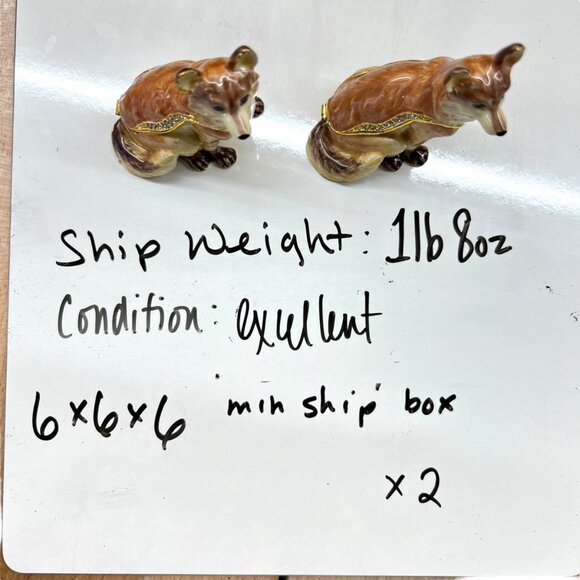 Ship Weight: 1lb 8oz
Condition: excellent
6x6x6 "min ship" box
x2